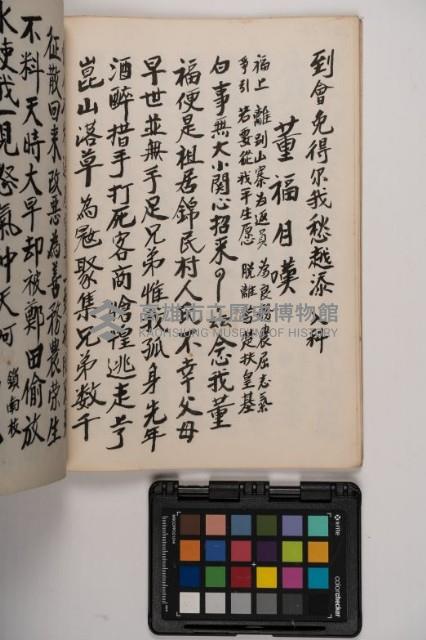 到會免得尔我愁越添 科
董福自嘆
福上 離到山寨為返員 為良務農屈志氣
爭引 若要從我平生愿 脱離 是扶皇基
白事無大小関心招采 一 念我董
福便是祖居錦民村人 不幸父母
早世並無手足兄弟惟 孤身先年
酒醉措手打死客商愴惶逃走片
崑山落草為冦聚集兄弟数千
征散回来改悪為善務農荣生
不料天時大旱却被鄭田偷放
水使我一見怒氣冲天
鎖南枝
高雄市立歷史博物館
KAOHSIUNG MUSEUM OF HISTORY
x-rite
colorchecker